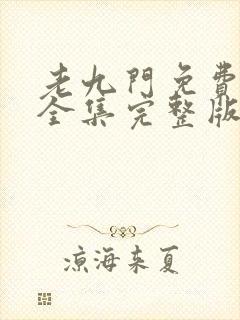 老九門免費
全集完整版
涼海来夏